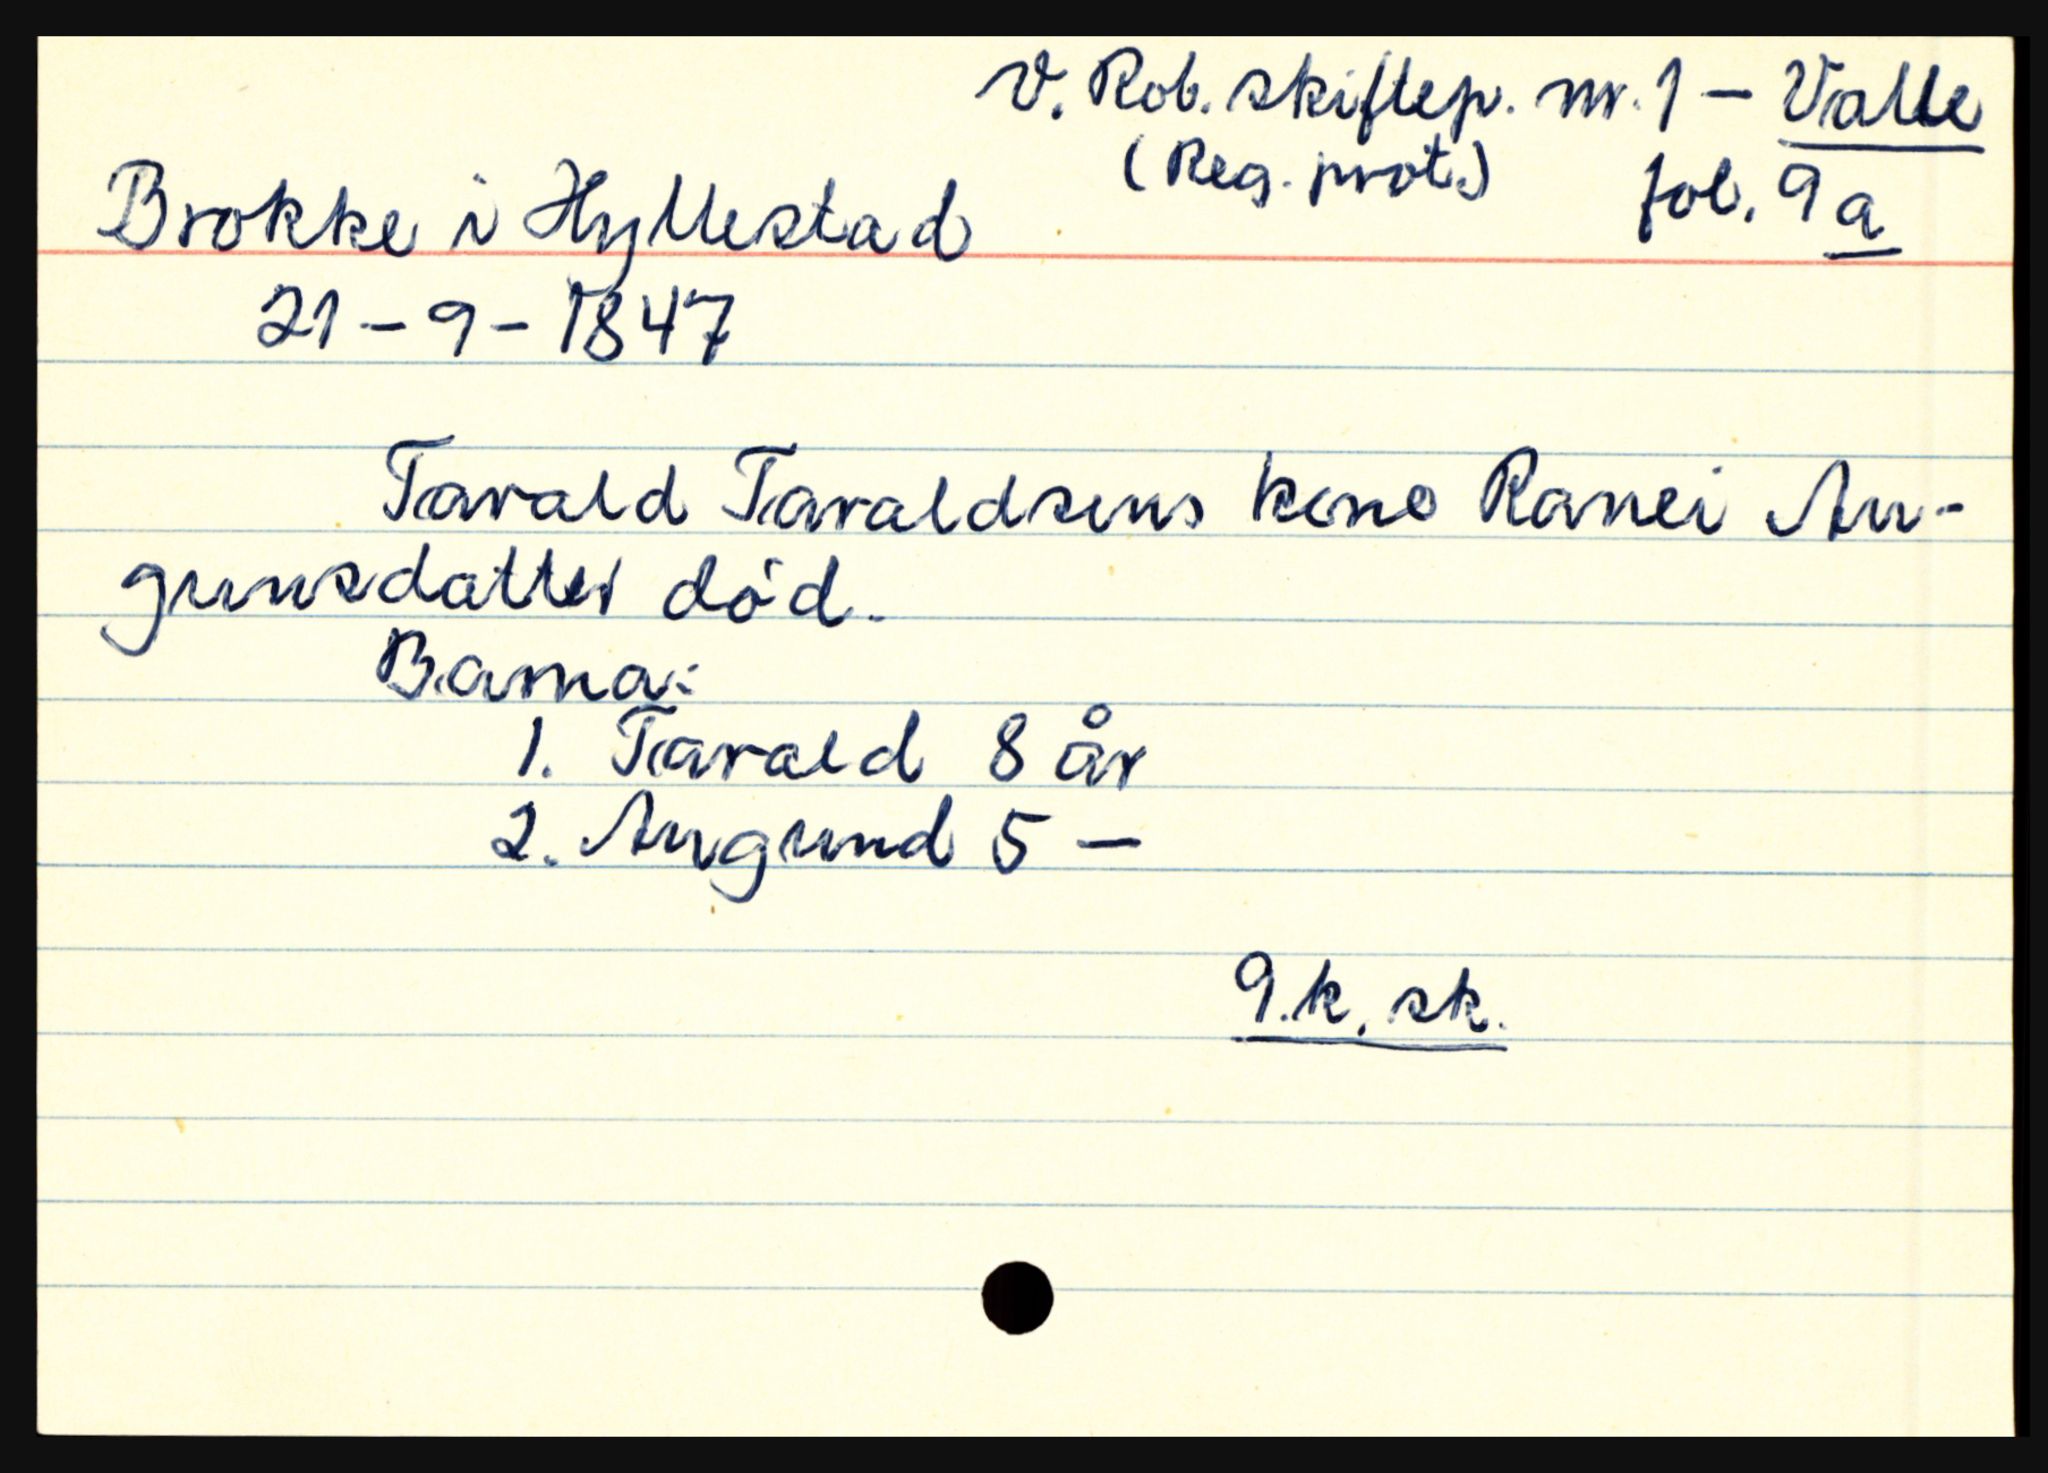 V. Rob. skiftep. nr. 1 – Valle
(Reg. prot.) fol. 9a
Brokke i Hyllestad
21 – 9 – 1847
Tarald Taraldsens kone Ranei Au-
gunsdatter død.
Barna:
1. Tarald 8 år
2. Augund 5 –
9. k. sk.